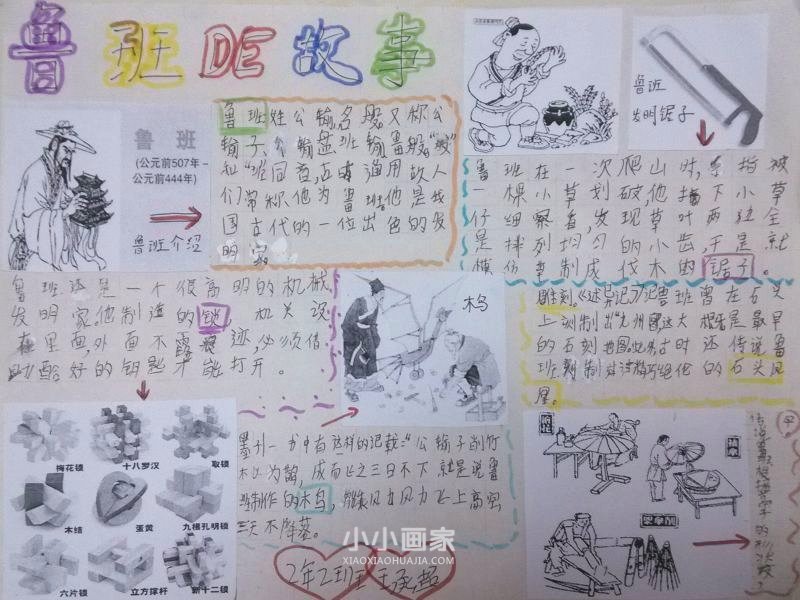 鲁班DE故事
鲁班
(公元前507年-
公元前444年)
鲁班介绍
鲁班姓公输,名般,又称公
输子、公输盘、班输、鲁般。"般"
和"班"同音,古时通用,故人
们常称他为鲁班。他是我
国古代的一位出色的发
明家。
鲁班
发明锯子
鲁班在一次爬山时,手指被
一棵小草划破,他摘下小草
仔细察看,发现草叶两边全
是排列均匀的小齿,于是就
模仿草制成伐木的锯子。
鲁班还是一个很高明的机械
发明家。他制造的锁,机关设
在里面,外面不露痕迹,必须借
助配好的钥匙才能打开。
木鸟
雕刻。《述异记》记鲁班曾在石头
上刻制出"九州图"这大
的石刻地图。此外古时还传说鲁
班刻制过精巧绝伦的石头凤
凰。
梅花锁
十八罗汉
取锁
木结
蛋黄
九根孔明锁
六片锁
立方撑杆
新十二锁
墨子一书中有这样的记载:"公输子削竹
木以为鹊,成而飞之三日不下"就是说鲁
班制作的木鸟,能乘风力飞上高空
三天不降落。
2年2班
小小画家
XIAOXIAOHUAJIA.COM